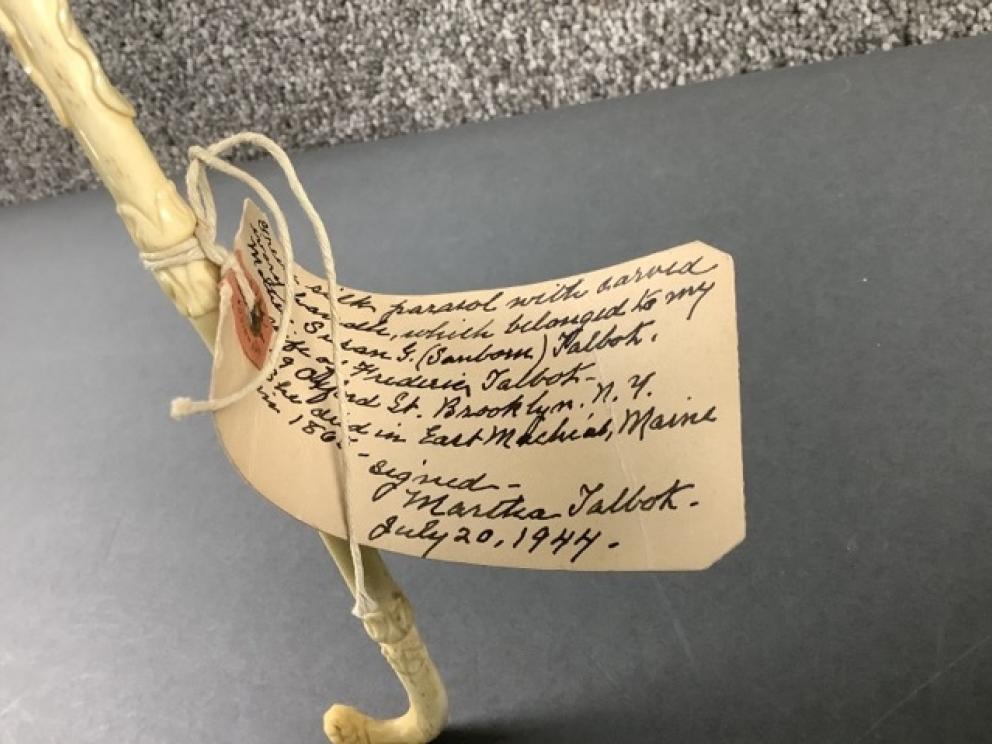 silk parasol with carved
handle, which belonged to my
Susan G. (Sanborn) Talbot.
wife of Frederic Talbot -
9 Oxford St. Brooklyn. N. Y.
She died in East Machias, Maine
in
signed -
Martha Talbot -
July 20, 1944 -